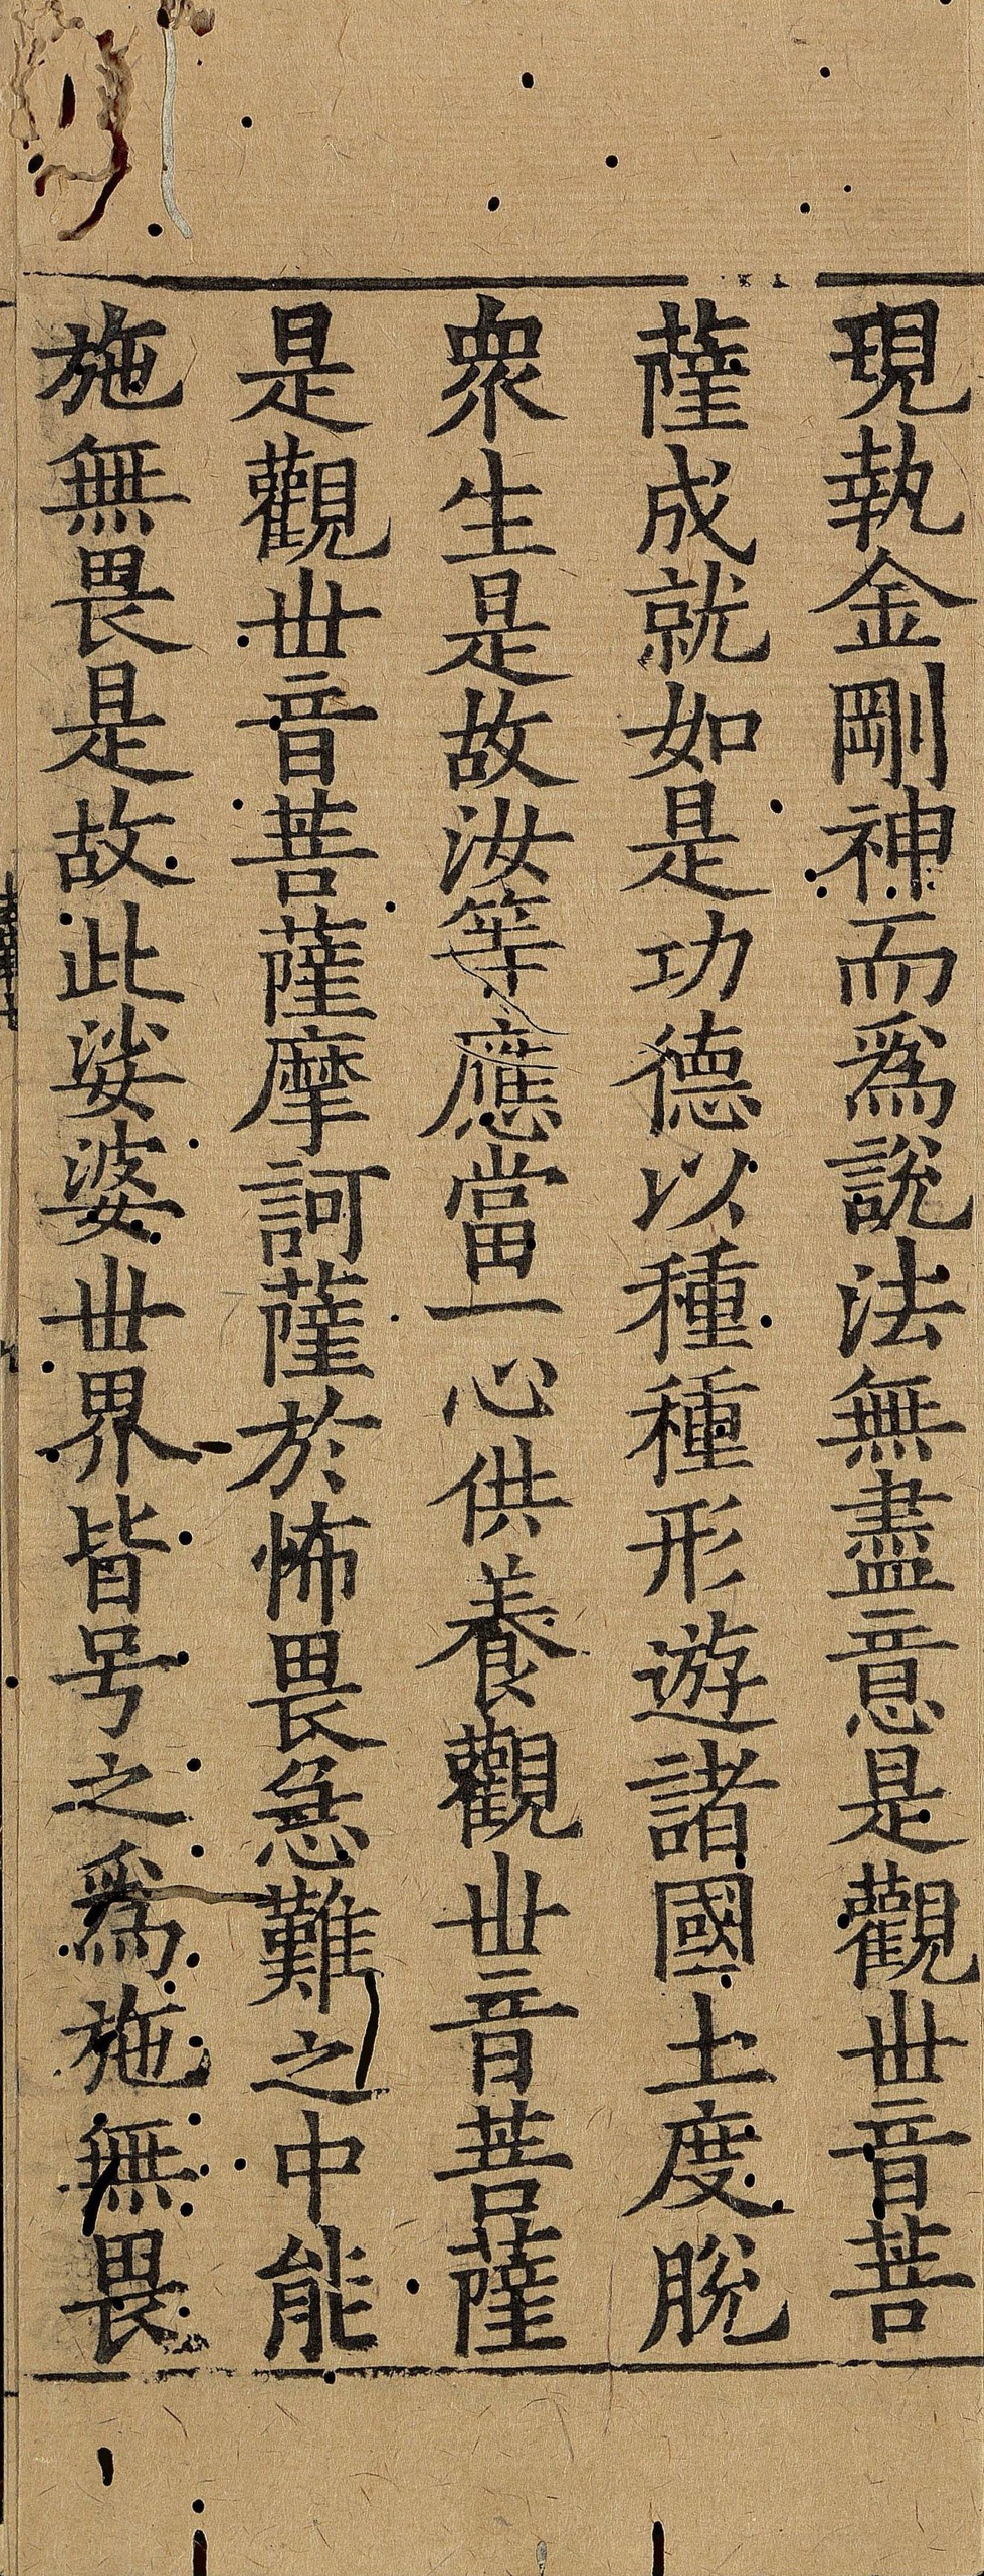 現執金剛神而爲說法無盡意是觀丗音菩
薩成就如是功德以種種形遊諸國土度脫
衆生是故汝等應當一心供養觀丗音菩薩
是觀丗音菩薩摩訶薩於怖畏急難之中能
施無畏是故此娑婆丗界皆号之爲施無畏